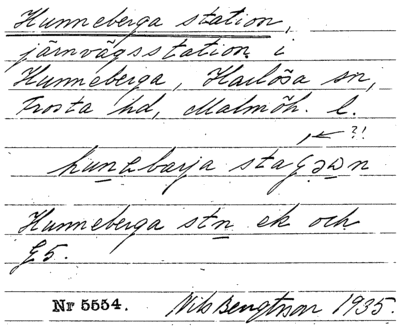 Hunneberga station,
järnvägsstation i
Hunneberga, Harlösa sn,
Frosta hd, Malmöh. l.
?!
Hunneberga stn ek och
G5.
Nr 5554. Nils Bengtsson 1935.